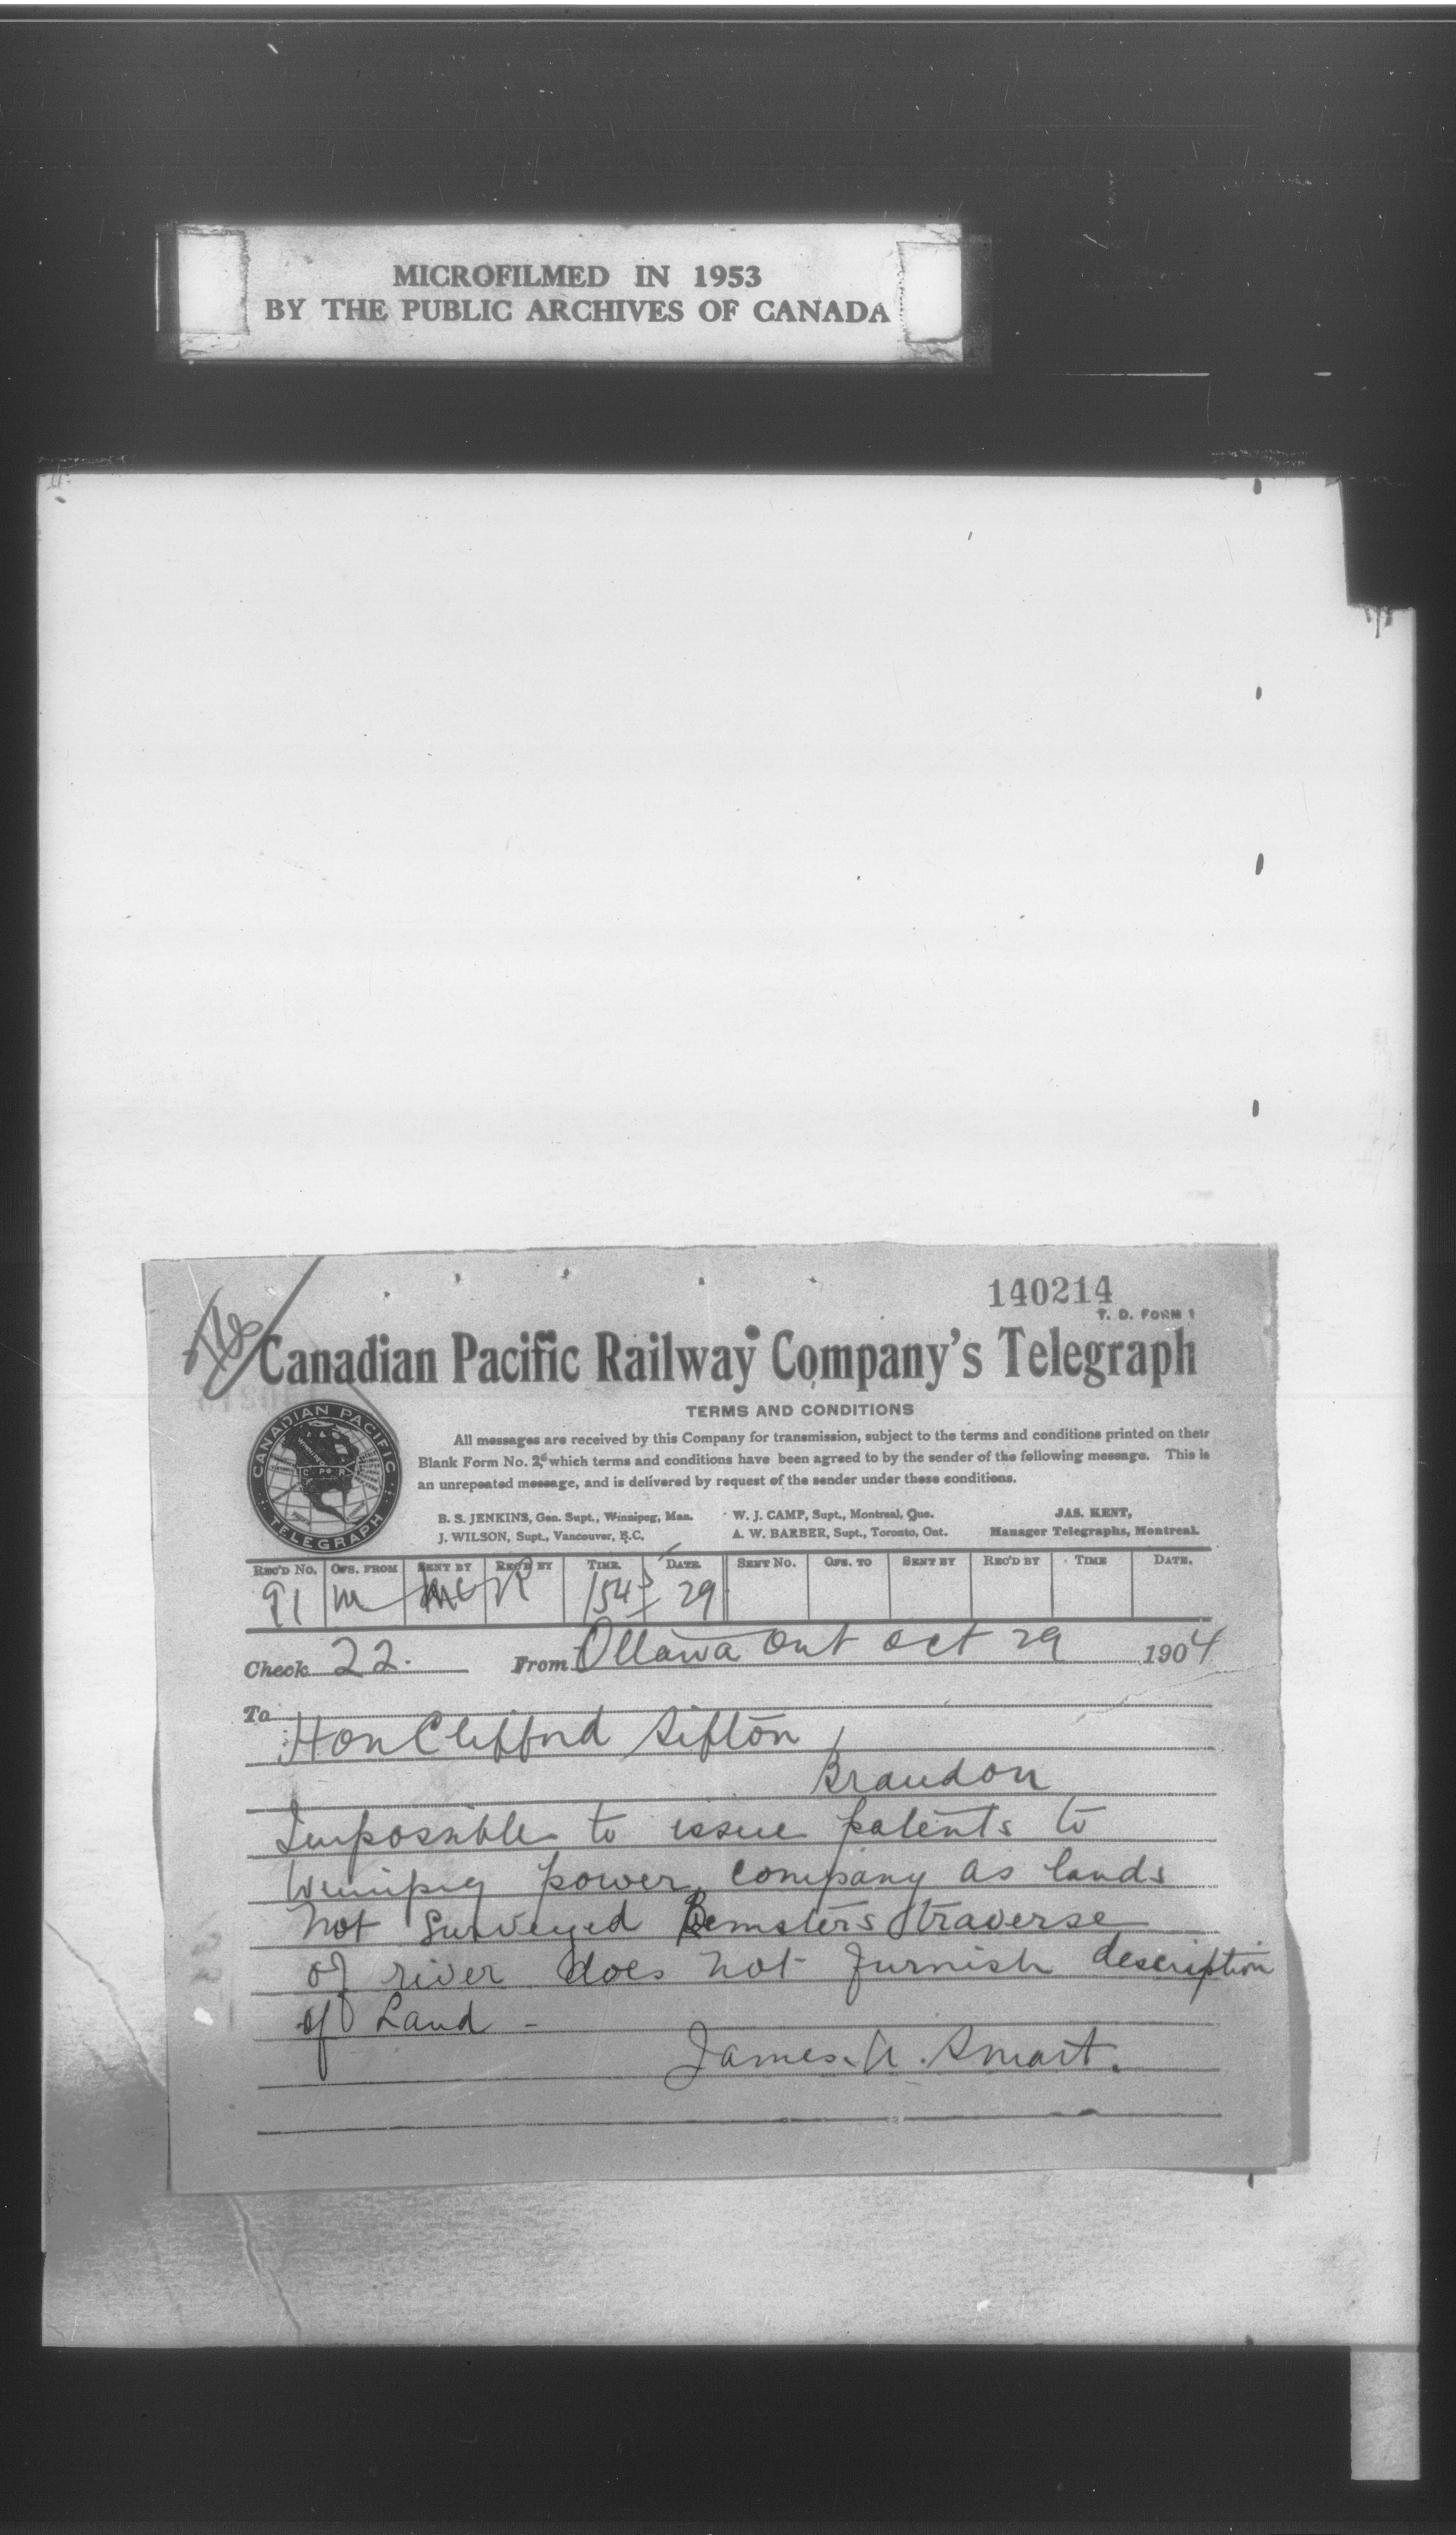 MICROFILMED IN 1953
BY THE PUBLIC ARCHIVES OF CANADA
140214
T. D. FORM 1
Canadian Pacific Railway Company's Telegraph
TERMS AND CONDITIONS
All messages are received by this Company for transmission, subject to the terms and conditions printed on their
Blank Form No. 2, which terms and conditions have been agreed to by the sender of the following message. This is
an unrepeated message, and is delivered by request of the sender under these conditions.
B. S. JENKINS, Gen. Supt., Winnipeg, Man. W. J. CAMP, Supt., Montreal, Que. JAS. KENT,
J. WILSON, Supt., Vancouver, B.C. A. W. BARBER, Supt., Toronto, Ont. Manager Telegraphs, Montreal.
CANADIAN PACIFIC TELEGRAPH
REC'D NO. OFS. FROM SENT BY REC'D BY TIME DATE SENT NO. OFS. TO SENT BY REC'D BY TIME DATE.
91 M 29
Check 22. From Ottawa Ont Oct 29 1904
To
Hon Clifford Sifton
Brandon
Impossible to issue patents to
Winnipeg power company as lands
not surveyed traverse
of river does not furnish description
of Land -
James A. Smart.